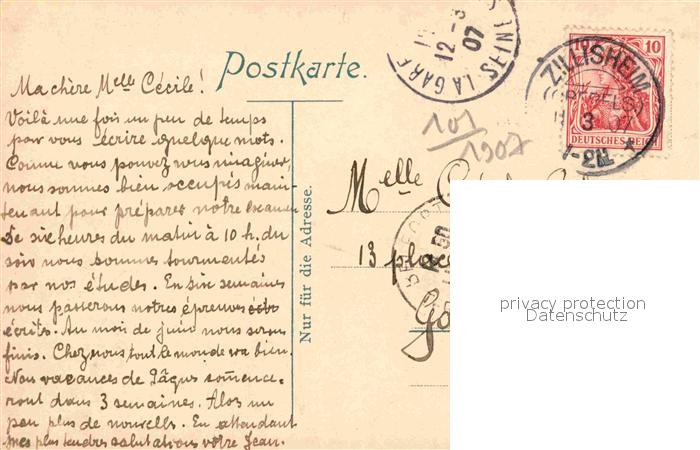 Postkarte.
Ma chère Melle Cécile!
Voilà une fois un peu de temps
par vous écrire quelque mots.
Comme vous pouvez vous imaginer,
nous sommes bien occupés main-
tenant pour préparer notre examen
De six heures du matin à 10 h. du
soir nous sommes tourmentés
par nos études. En six semaines
nous passerons notres épreuves
écrits. Au mois de juin nous serons
finis. Chez nous tout le monde va bien.
Nos vacances de Pâques commence-
ront dans 3 semaines. Alors un
peu plus de nouvelles. En attendant
mes plus tendres salutations votre Jean.
Nur für die Adresse.
LA GARE
12 - 3
07
10 10
DEUTSCHES REICH
ZILLISHEIM
3 07
1-2N
101
1907
Melle
13 place
privacy protection
Datenschutz